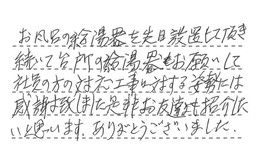 お風呂の給湯器を先日設置して頂き
続いて台所の給湯器もお願いして
社員の方の対応、工事に対する姿勢には
感謝致しました是非お友達も紹介した
いと思います。ありがとうございました.